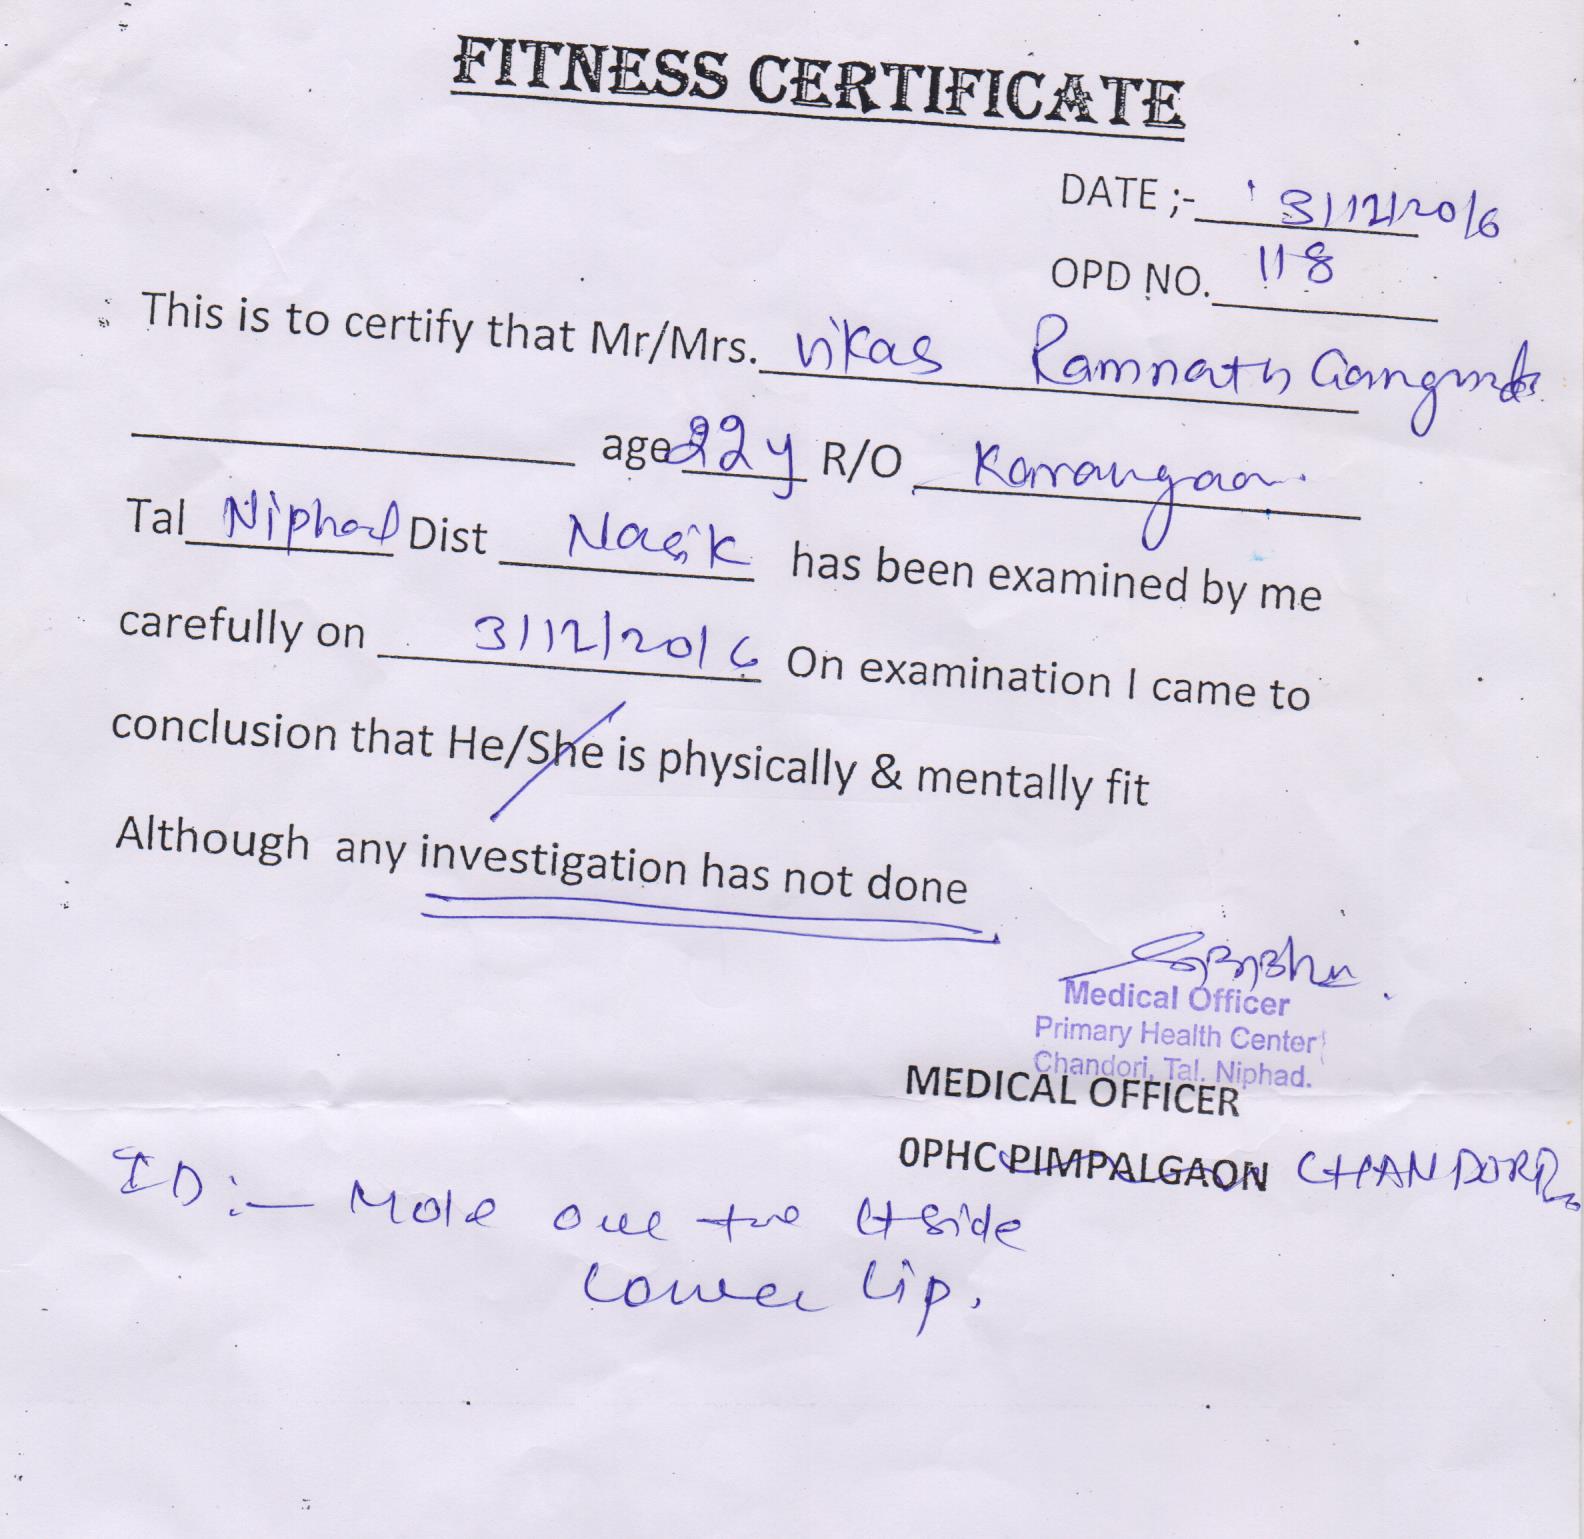 FITNESS CERTIFICATE
DATE ;- 3/12/2016
OPD NO. 118
This is to certify that Mr/Mrs. Vikas Ramnath
age 22y R/O
Tal Niphad Dist Nasik has been examined by me
carefully on 3/12/2016 On examination I came to
conclusion that He/She is physically & mentally fit
Although any investigation has not done
Medical Officer
Primary Health Center
Chandori, Tal. Niphad.
MEDICAL OFFICER
0PHC PIMPALGAON CHANDORI
ID :- Mole one the Lt side
Lower Lip.